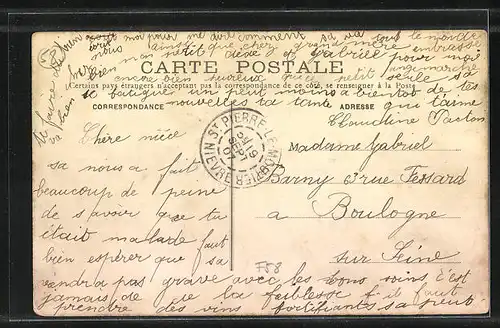 bien nous moi pour me dire comment sa va tout le monde
ainsi que chez grand mère embrasse
bien mon petit dédé et Gabriel pour moi
CARTE POSTALE
encore bien heureux que ce petit seule sa
(Certains pays étrangers n'acceptent pas la correspondance de ce côté, se renseigner à la Poste)
se fatigue un peu moins a bientot de tes
CORRESPONDANCE
nouvelles ta tante
ADRESSE
qui t'aime
Claudine
Chère nièce
sa nous a fait
beaucoup de peine
de savoir que tu
était malade faut
bien espérer que sa
viendra pas grave avec les bons soins c'est
jamais de la faiblesse il faut
prendre des vins fortifiants sa peut
ST PIERRE-LE-MOUTIER
NIEVRE
Madame Gabriel
Barny 3 rue Fessard
a Boulogne
sur Seine
F58